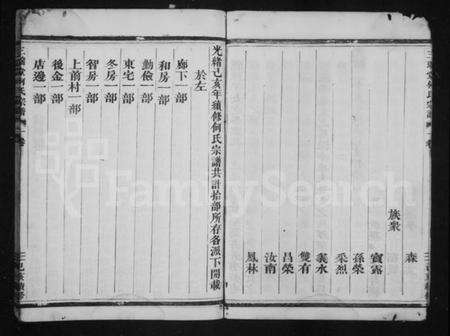 森
族衆
寶露
孫榮
采烈
義永
雙有
昌榮
汝南
鳳林
光緒己亥年續修何氏宗譜共計拾部所存各派下開載
於左
廊下一部
和房一部
勤儉一部
東宅一部
冬房一部
智房一部
上前村一部
後金一部
店邊一部
FamilySearch